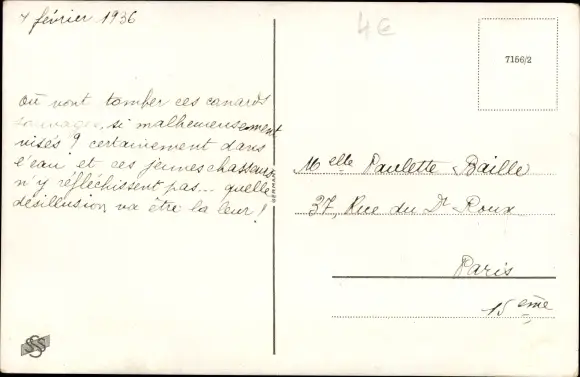 4 février 1936
4€
7156/2
Où vont tomber ces canards
sauvages, si malheureusement
visés ? certainement dans
l'eau et ces jeunes chasseurs
n'y réfléchissent pas... quelle
désillusion va être la leur !
GERMANY
Melle Paulette Baille
37, Rue du Dr Roux
Paris
15ème
SSS